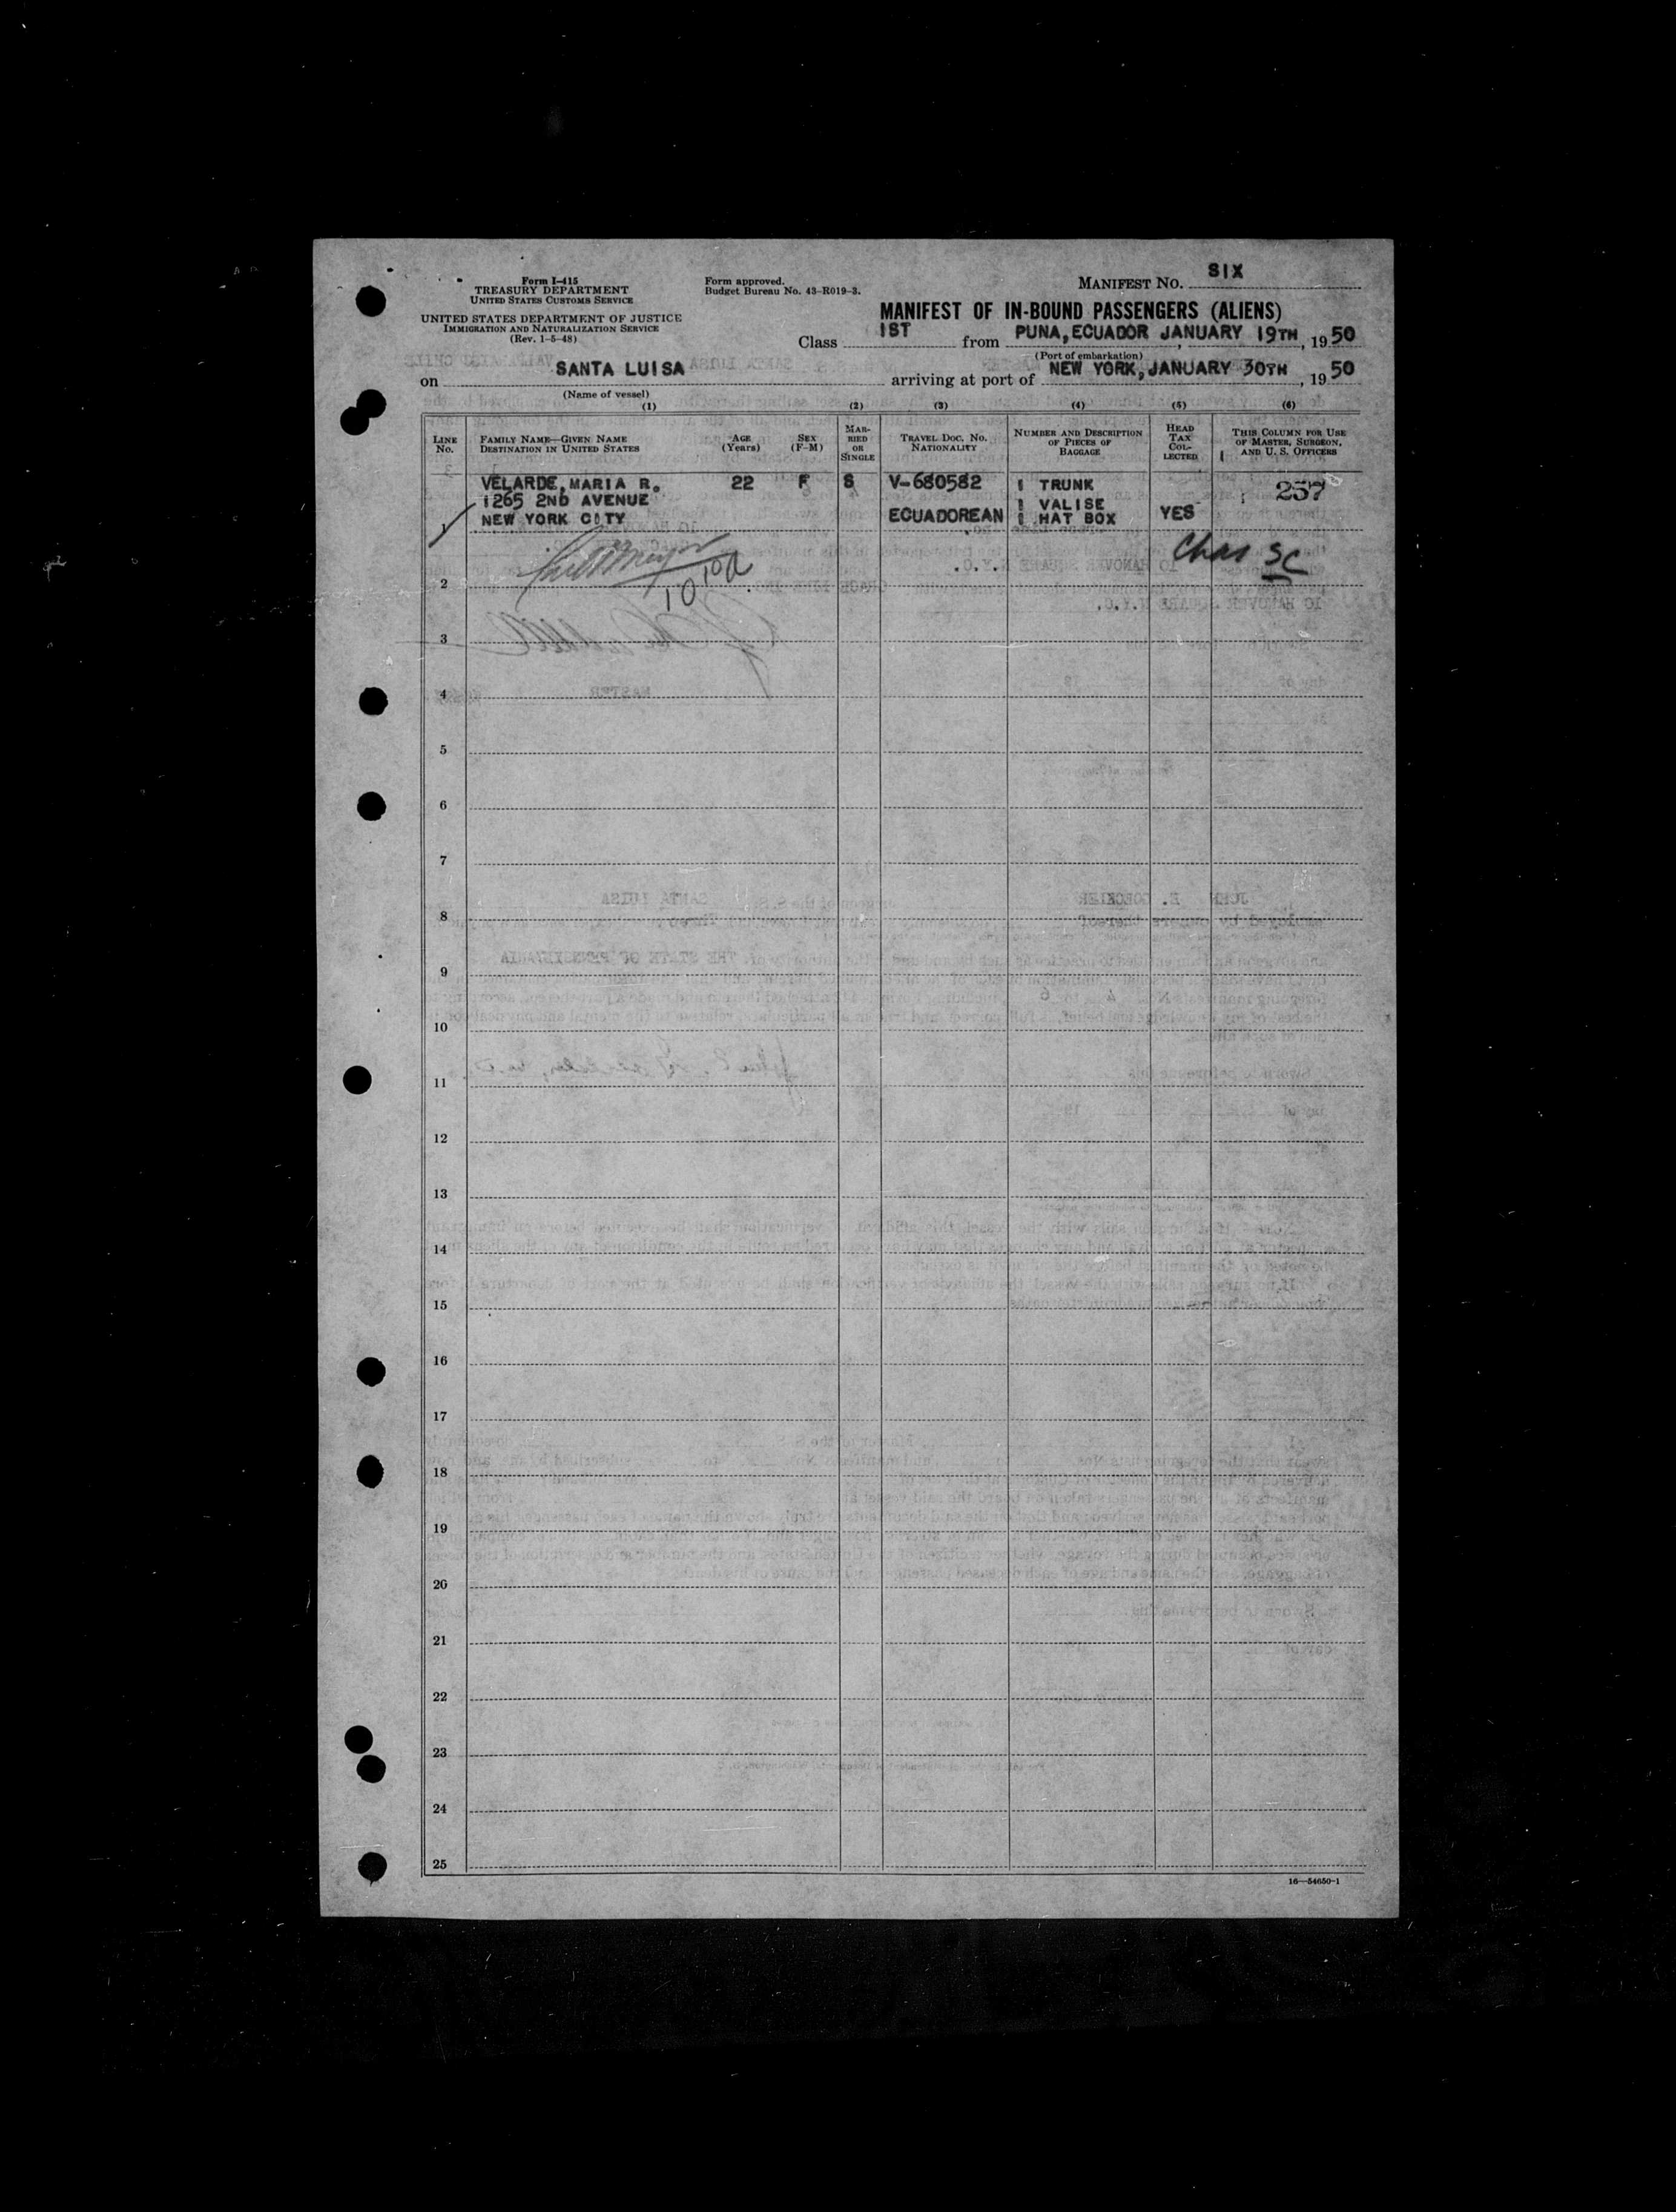 Form I-415
TREASURY DEPARTMENT
UNITED STATES CUSTOMS SERVICE
UNITED STATES DEPARTMENT OF JUSTICE
IMMIGRATION AND NATURALIZATION SERVICE
(Rev. 1-5-48)
Form approved.
Budget Bureau No. 43-R019-3.
MANIFEST NO. SIX
MANIFEST OF IN-BOUND PASSENGERS (ALIENS)
Class 1ST from PUNA, ECUADOR JANUARY 19TH, 1950
(Port of embarkation)
on SANTA LUISA arriving at port of NEW YORK, JANUARY 30TH, 1950
(Name of vessel)
(1) (2) (3) (4) (5) (6)
LINE No.
FAMILY NAME—GIVEN NAME
DESTINATION IN UNITED STATES
AGE (Years)
SEX (F-M)
MARRIED OR SINGLE
TRAVEL DOC. NO.
NATIONALITY
NUMBER AND DESCRIPTION OF PIECES OF BAGGAGE
HEAD TAX COLLECTED
THIS COLUMN FOR USE OF MASTER, SURGEON, AND U. S. OFFICERS
VELARDE, MARIA R. 22 F S V-680582 1 TRUNK 257
1265 2ND AVENUE 1 VALISE
1 NEW YORK CITY ECUADOREAN 1 HAT BOX YES
Chas SC
2
10
3
4
5
6
7
8
9
10
11
12
13
14
15
16
17
18
19
20
21
22
23
24
25
16—54650-1